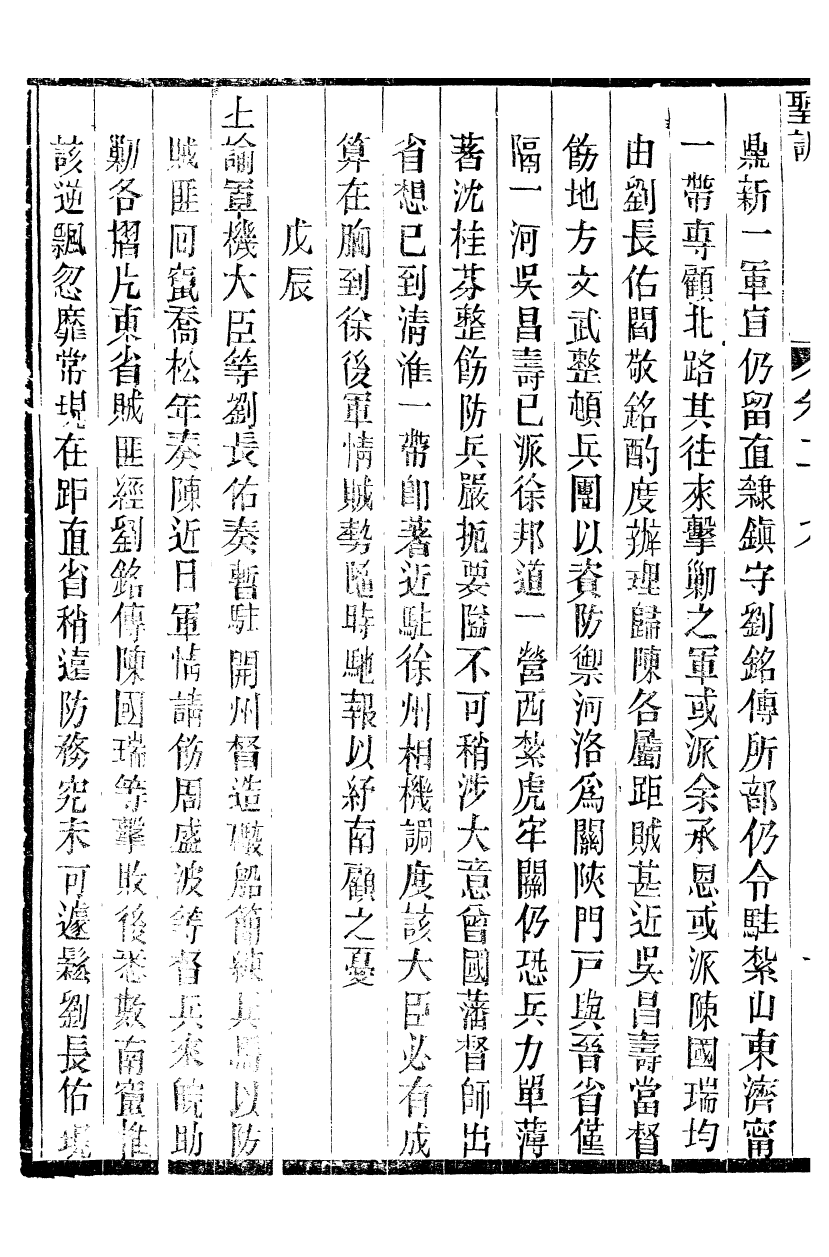 聖訓
鼎新一軍宜仍留直隸鎮守劉銘傳所部仍令駐紮山東濟甯
一帶專顧北路其往來擊勦之軍或派余承恩或派陳國瑞均
由劉長佑閻敬銘酌度辦理歸陳各屬距賊甚近吳昌壽當督
飭地方文武整頓兵團以資防禦河洛爲關陝門戶與晉省僅
隔一河吳昌壽已派徐邦道一營西紮虎牢關仍恐兵力單薄
著沈桂芬整飭防兵嚴扼要隘不可稍涉大意曾國藩督師出
省想已到清淮一帶卽著近駐徐州相機調度該大臣必有成
算在胸到徐後軍情賊勢隨時馳報以紓南顧之憂
戊辰
上諭軍機大臣等劉長佑奏暫駐開州督造礮船簡練兵馬以防
賊匪回竄喬松年奏陳近日軍情請飭周盛波等督兵來皖助
勦各摺片東省賊匪經劉銘傳陳國瑞等擊敗後悉數南竄惟
該逆飄忽靡常現在距直省稍遠防務究未可遽鬆劉長佑現